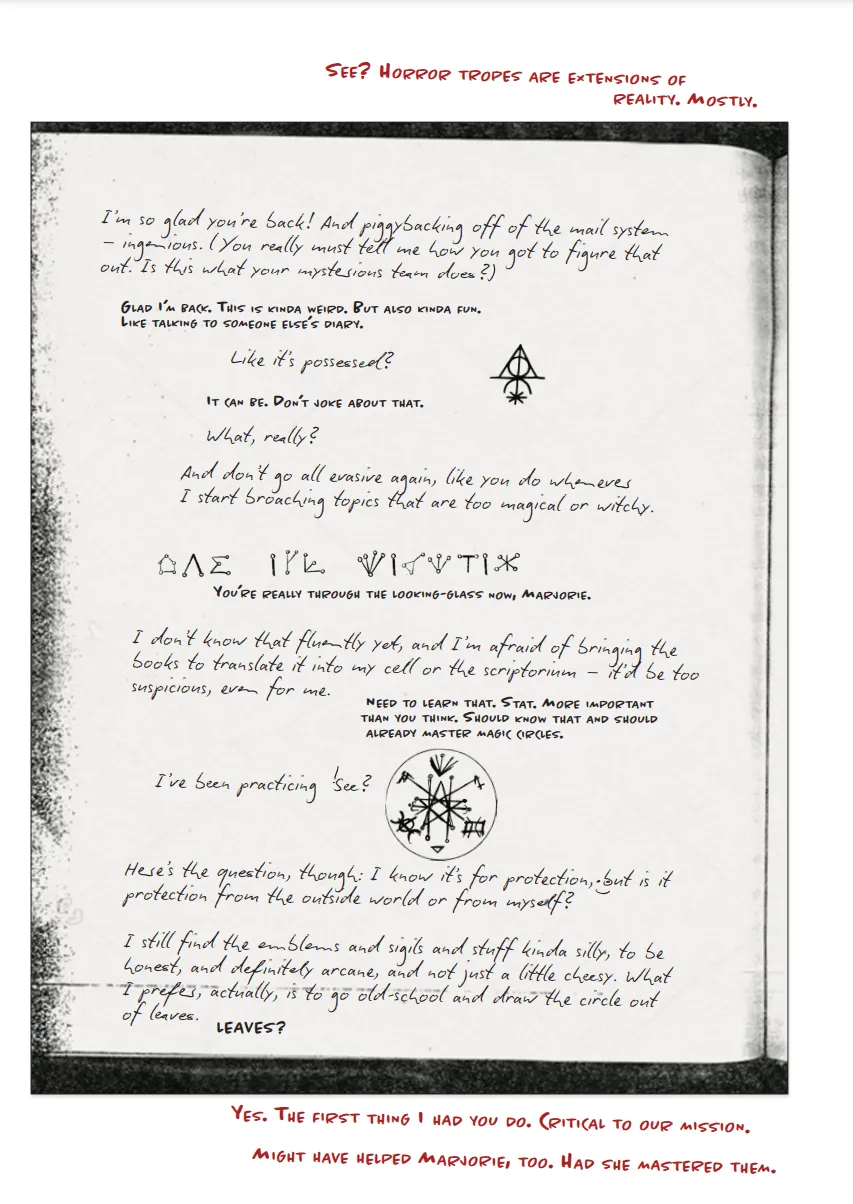 See? Horror tropes are extensions of
reality. Mostly.
I'm so glad you're back! And piggybacking off of the mail system
– ingenious. (You really must tell me how you got to figure that
out. Is this what your mysterious team does?)
Glad I'm back. This is kinda weird. But also kinda fun.
Like talking to someone else's diary.
Like it's possessed?
It can be. Don't joke about that.
What, really?
And don't go all evasive again, like you do whenever
I start broaching topics that are too magical or witchy.
You're really through the looking-glass now, Marjorie.
I don't know that fluently yet, and I'm afraid of bringing the
books to translate it into my cell or the scriptorium – it'd be too
suspicious, even for me.
Need to learn that. Stat. More important
than you think. Should know that and should
already master magic circles.
I've been practicing! See?
Here's the question, though: I know it's for protection, but is it
protection from the outside world or from myself?
I still find the emblems and sigils and stuff kinda silly, to be
honest, and definitely arcane, and not just a little cheesy. What
I prefer, actually, is to go old-school and draw the circle out
of leaves.
Leaves?
Yes. The first thing I had you do. Critical to our mission.
Might have helped Marjorie, too. Had she mastered them.